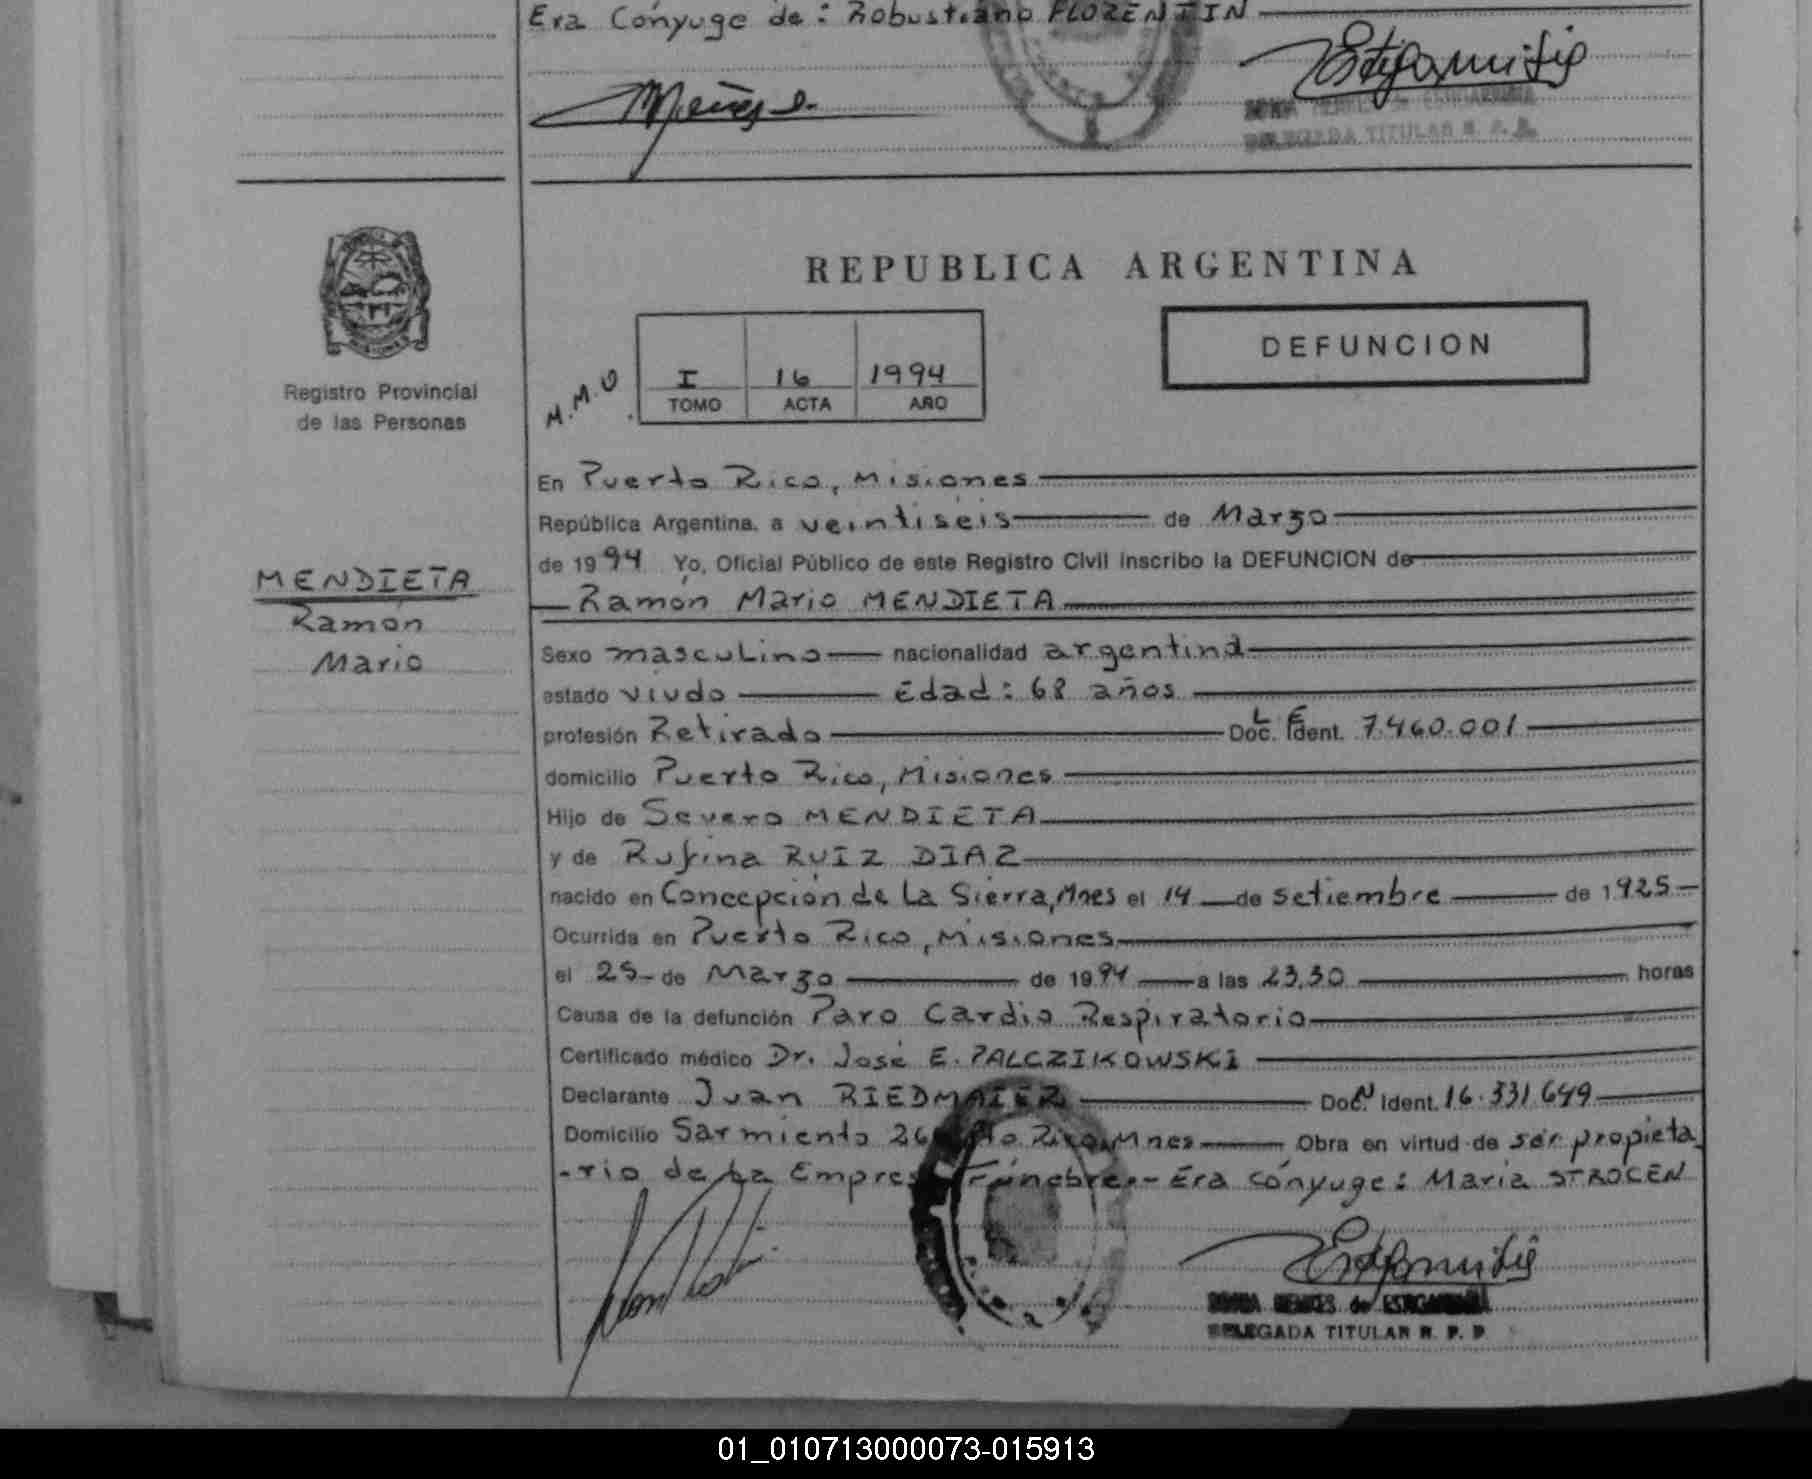 Era Cónyuge de: Robustiano FLORENTIN
DELEGADA TITULAR R. P. P.
REPUBLICA ARGENTINA
DEFUNCION
M.M.O.
I 16 1994
TOMO ACTA AÑO
Registro Provincial
de las Personas
En Puerto Rico, Misiones
República Argentina, a veintiseis de Marzo
de 1994 Yo, Oficial Público de este Registro Civil inscribo la DEFUNCION de
Ramón Mario MENDIETA
MENDIETA
Ramón
Mario
Sexo masculino nacionalidad argentina
estado viudo Edad: 68 años
profesión Retirado Doc. Ident. L E 7.460.001
domicilio Puerto Rico, Misiones
Hijo de Severo MENDIETA
y de Rufina RUIZ DIAZ
nacido en Concepción de La Sierra, Mnes el 14 de setiembre de 1925
Ocurrida en Puerto Rico, Misiones
el 25 de Marzo de 1994 a las 23,30 horas
Causa de la defunción Paro Cardio Respiratorio
Certificado médico Dr. José E. PALCZIKOWSKI
Declarante Juan RIEDMAIER Doc. Ident. 16.331.649
Domicilio Sarmiento Pto Rico, Mnes Obra en virtud de ser propieta
-rio de La Empresa Fúnebre.- Era cónyuge: Maria STROCEN
DELEGADA TITULAR R. P. P.
01_010713000073-015913